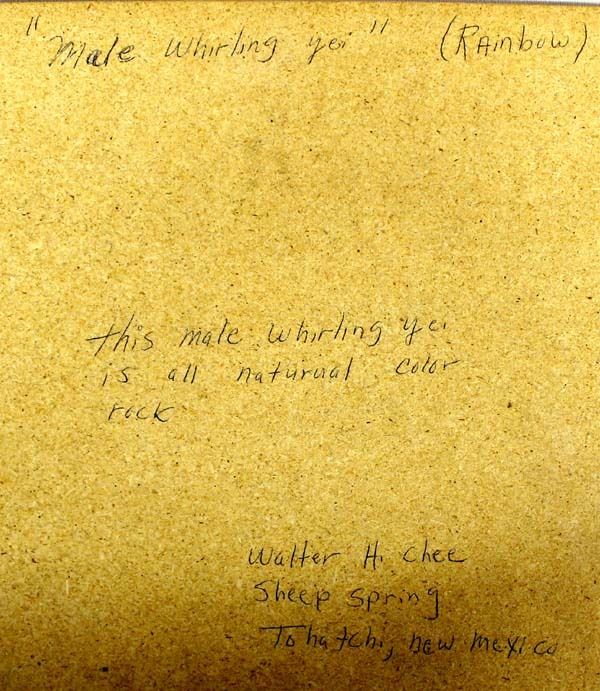 "Male whirling yei" (RAinbow)
this male whirling yei
is all naturual color
rock
Walter H. Chee
Sheep Spring
Tohatchi, new mexico